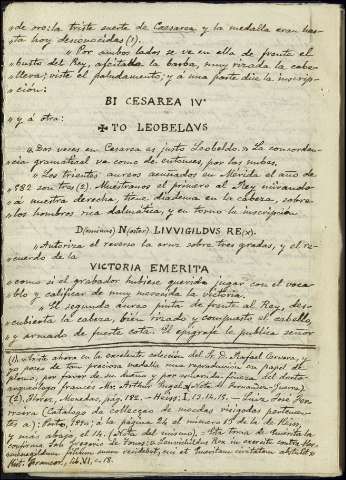 «de oro: la triste suerte de Caesarea y la medalla eran has-
«ta hoy desconocidas (1).
« Por ambos lados se ve en ella de frente el
«busto del Rey, afeitada la barba, muy rizada la cabe-
«llera; viste el paludamento; y á una parte dice la inscrip-
«cion:
BI CESAREA IVˢ
« y á otra:
✠ TO LEOBELDVS
« Dos veces en Cesarea es justo Leobeldo. » La concordan-
«cia gramatical va como de entonces, por las nubes.
« Los trientes aureos acuñados en Mérida el año de
«582 son tres (2). Muestranos el primero al Rey mirando
«á nuestra derecha, tiene diadema en la cabeza, sobre
«los hombros rica dalmática, y en torno la inscripcion
D(ominus) N(oster) LIVVIGILDVS RE(x).
« Autoriza el reverso la cruz sobre tres gradas, y el re-
«cuerdo de la
VICTORIA EMERITA
«como si el grabador hubiese querido jugar con el voca-
«blo y calificar de muy merecida la victoria.
« El segundo áureo pinta de frente al Rey, des-
«cubierta la cabeza, bien rizado y compuesto el cabello,
«y armado de fuerte cota. El epígrafe le publica señor
(1). «Existe ahora en la excelente coleccion del Sr. D. Rafael Cervera, y
«yo poseo de tan preciosa medalla una reproduccion en papel de
«plomo, por favor de su dueño y por mi del docto
arqueólogo francés Mr. Arthur Engel.» (Nota del Sr. Fernandez-Guerra).
(2). Florez, Monedas, pág. 182. — Heiss: I. 13. 14. 15. — Luiz José Fer-
reira (Catalogo da collecção de moedas visigodas pertencen-
tes a); Porto, 1890; á la página 24 el número 15 de la de Heiss,
y más abajo el 14. (Nota del mismo). — Esta toma de Mérida la
confirma San Gregorio de Tours: «Leuvichildus Rex in exercitu contra Her-
menegildum filium suum residebat, cui et Emeritam civitatem abstulit»
Hist. Francor., lib. VI, — 18.